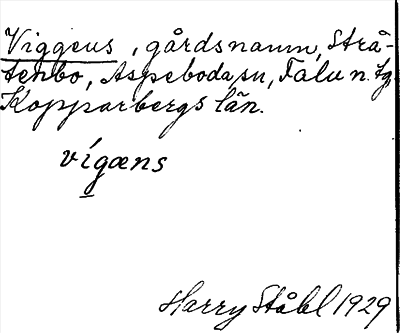 Viggeus, gårdsnamn, Strå-
tenbo, Aspeboda sn, Falu n. tg.
Kopparbergs län.
vígæns
Harry Ståhl 1929